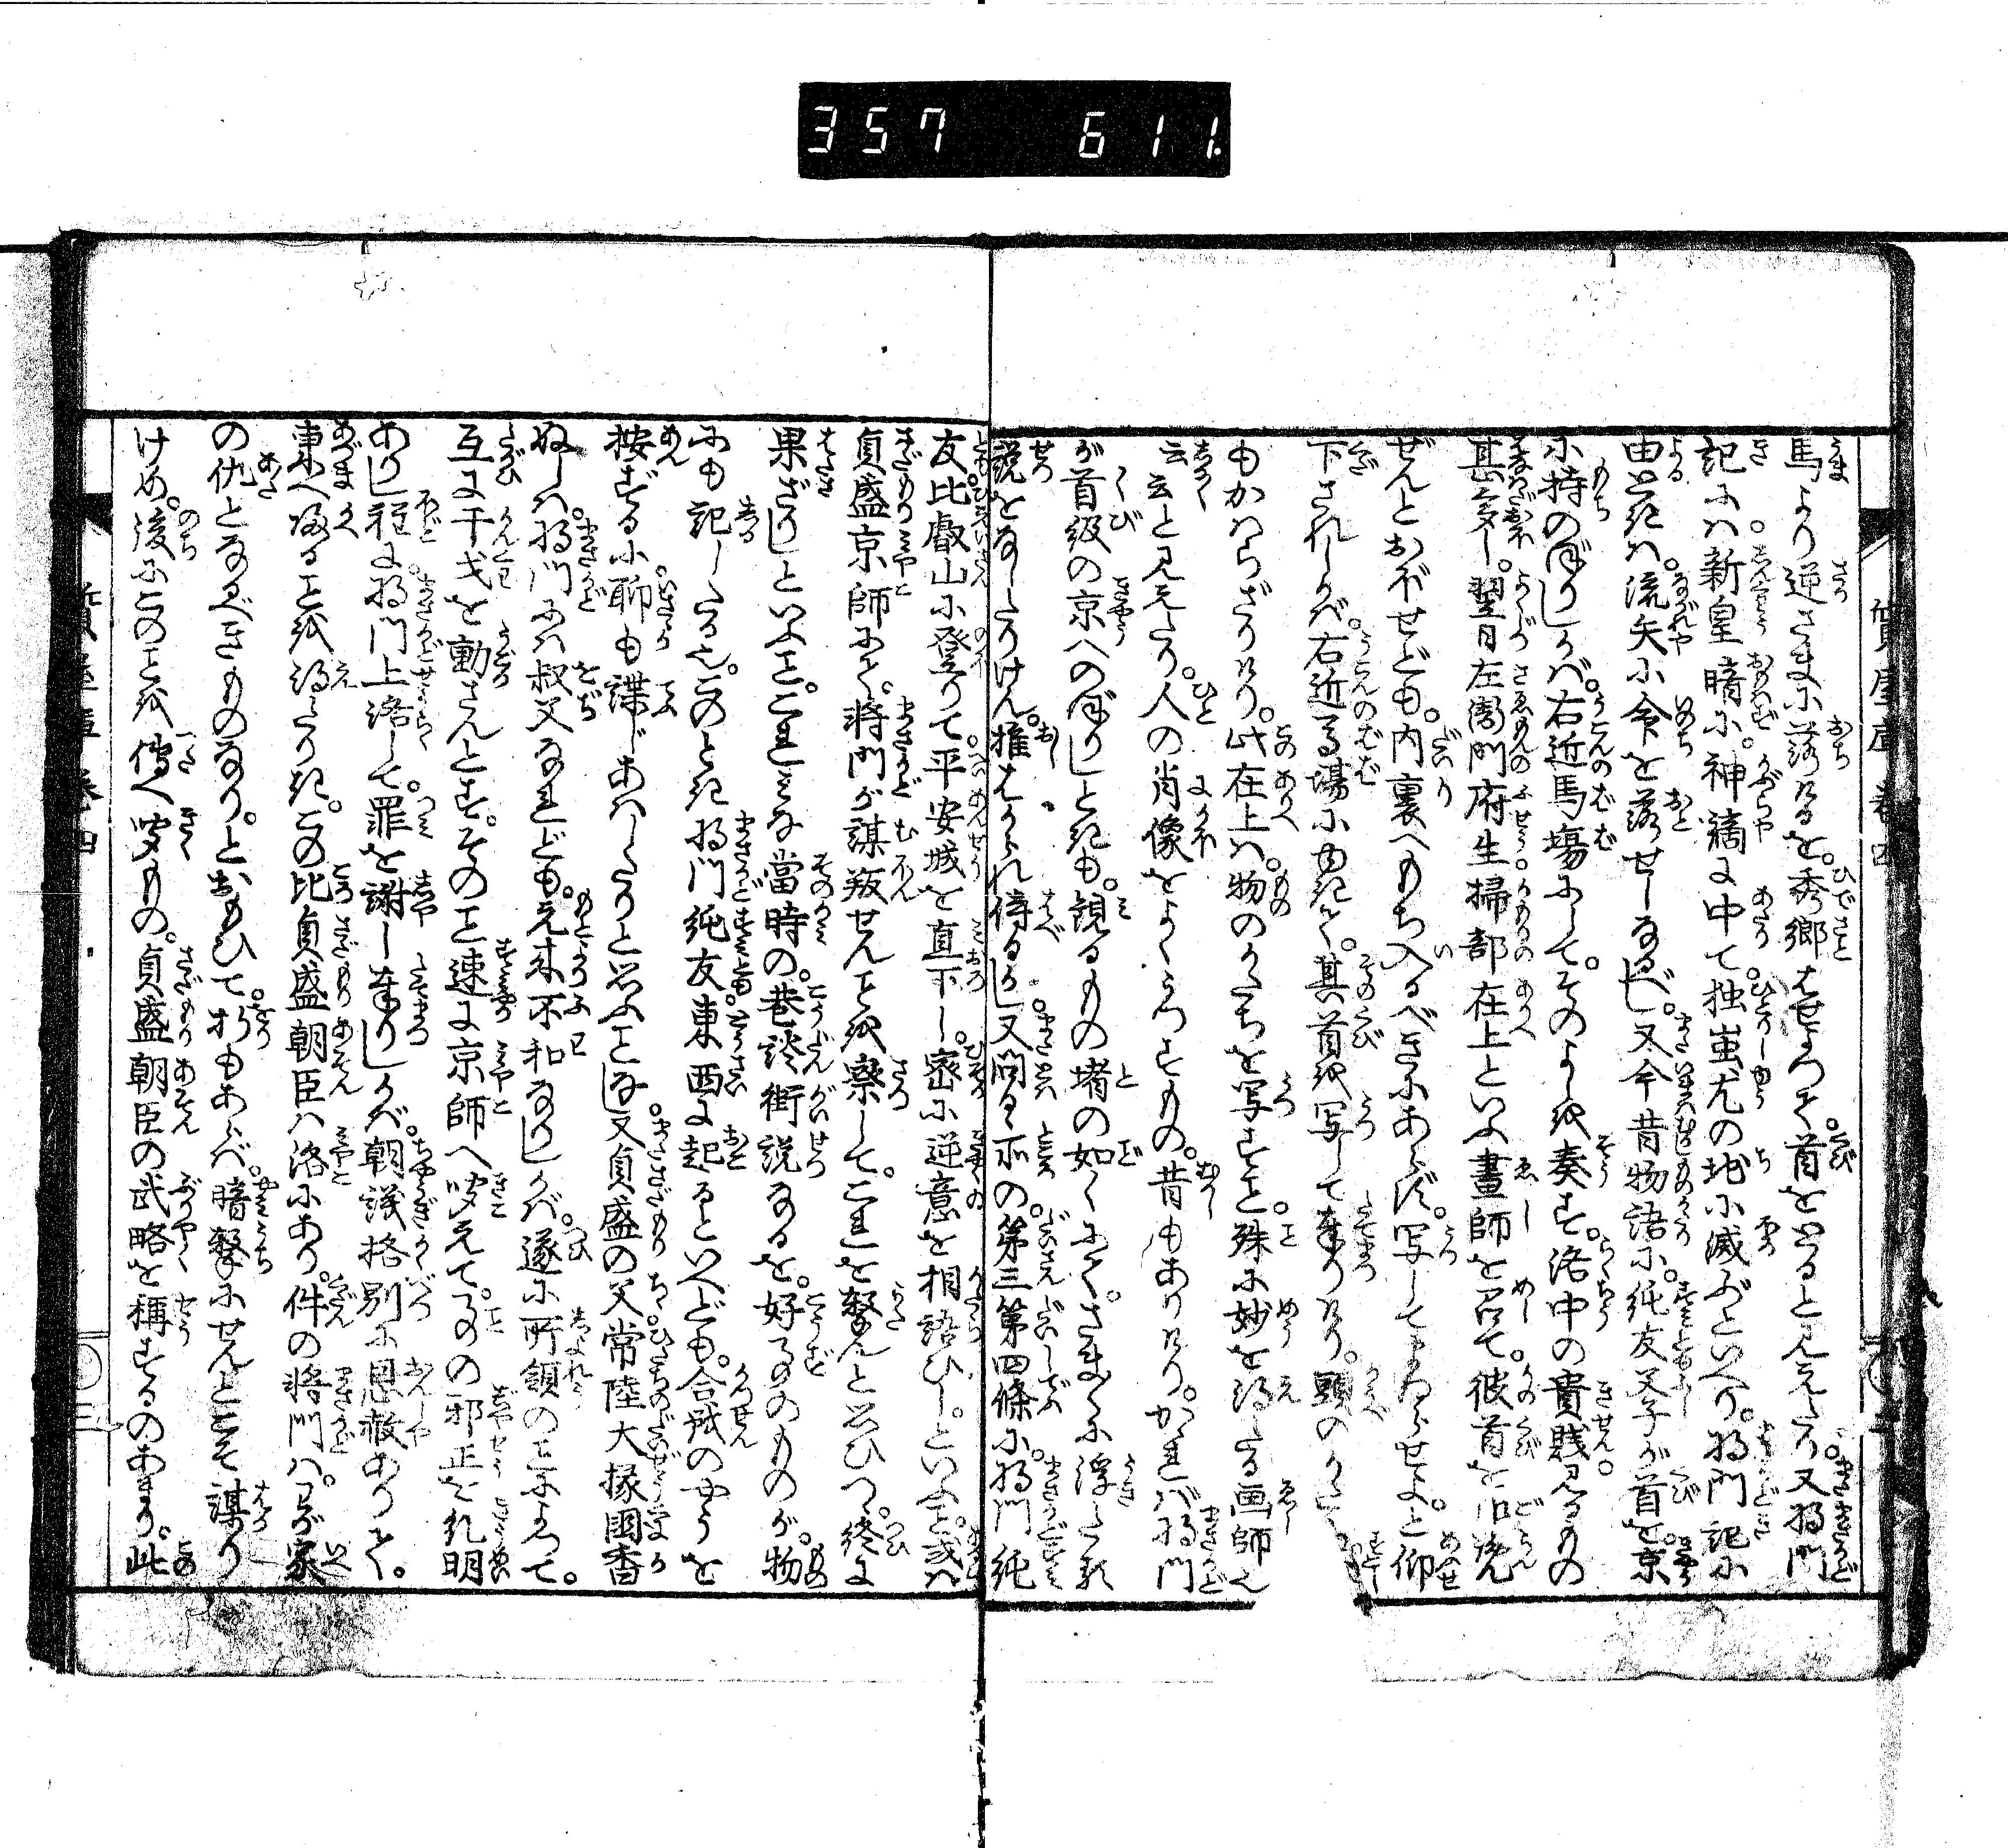 357 611.
質屋庫 巻四
馬より逆さまに落けるを。秀郷はせよつて。首をとると見えたり。又将門
記には新皇暗に。神鏑に中て独蚩尤の地に滅ぶといへり。将門記に
由ときは。流矢に命を落せしなるべし。又今昔物語に。純友父子が首を。京
に持のぼりしかば。右近馬場にして。そのよしを奏す。洛中の貴賤見るもの
甚多し。翌日左衛門府生掃部在上といふ画師を召て。彼首を
ぜんとおぼせども。内裏へもち入るべきにあらず。写してまゐらせよ。と仰
下されしかば。右近馬場にゆきて。其首を写して奉りけり。頭のかたち
もかはらざりけり。此在上は。物のかたちを写すこと。殊に妙を得たる画師也
云云と見えたり。人の肖像をよくうつすもの。昔もありけり。かゝれば将門
が首級の京へのぼりしときも。観るもの堵の如くにて。さま〴〵に浮たる
説をなしたりけん。推はかられ侍るかし。又問るゝ所の。第三第四條に。将門純
友比叡山に登りて。平安城を直下し。密に逆意を相語ひし。といふこと。或は
貞盛京師にて。将門が謀叛せんことを察して。これを撃んと思ひつゝ。終に
果ざりしといふこと。これみな当時の。巷談街説なるを。好事のものが。物
にも記したる也。このとき将門純友。東西に起るといへども。合戦のやうを
按ずるに。聊も諜じあはしたりと思ふことなし。又貞盛の父常陸大掾国香
ぬしは。将門には叔父なれども。元来不和なりしかば。遂に所領のことによつて。
互に干戈を動さんとす。そのこと速に京師へ聞えて。事の邪正を糺明
ありし程に。将門上洛して。罪を謝し奉りしかば。朝議格別に恩赦ありて。
東へ帰ることを得たりき。この比貞盛朝臣は洛にあり。件の将門は。わが家
の仇となるべきものなり。とおもひて。折もあらば。暗撃にせんとこそ謀り
けめ。後にこのことを伝へ聞もの。貞盛朝臣の武略を称するのあまり。此
質屋庫 巻四